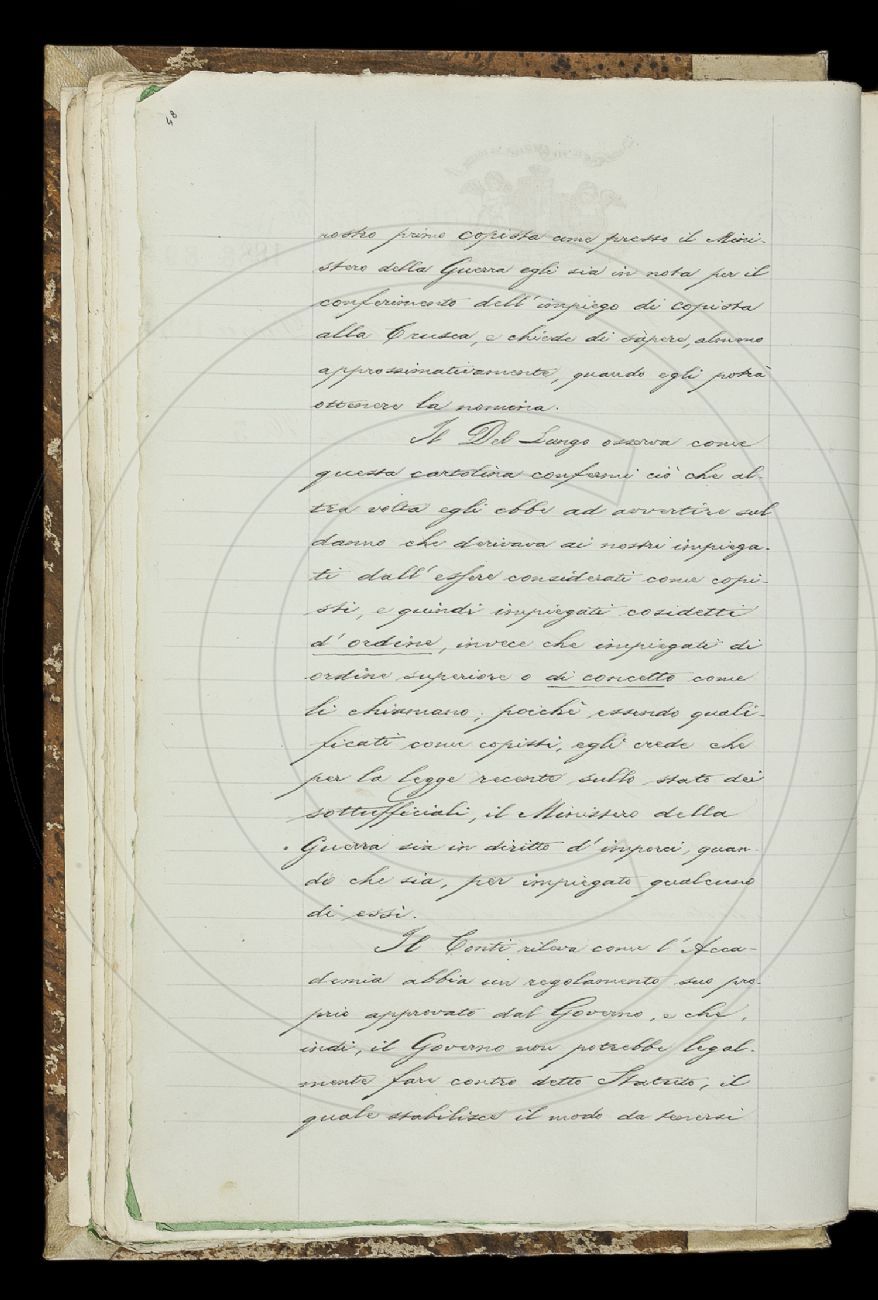 48
nostro primo copista come presso il Mini-
stero della Guerra egli sia in nota per il
conferimento dell'impiego di copista
alla Crusca, e chiede di sapere, almeno
approssimativamente, quando egli potrà
ottenere la nomina.
Il Del Lungo osserva come
questa cartolina confermi ciò che al-
tra volta egli ebbe ad avvertire sul
danno che derivava ai nostri impiega-
ti dall'essere considerati come copi-
sti, e quindi impiegati cosidetti
d'ordine, invece che impiegati di
ordine superiore o di concetto come
li chiamano; poichè essendo quali-
ficati come copisti, egli crede che
per la legge recente sullo stato dei
sottufficiali, il Ministero della
Guerra sia in diritto d'imporci, quan-
do che sia, per impiegato qualcuno
di essi.
Il Conti rileva come l'Acca-
demia abbia un regolamento suo pro-
prio approvato dal Governo, e che,
indi, il Governo non potrebbe legal-
mente fare contro detto Statuto, il
quale stabilisce il modo da tenersi